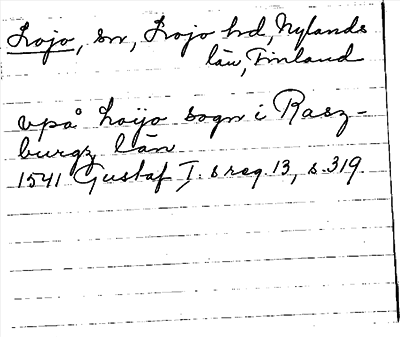 Lojo, sn, Lojo hd, Nylands
län, Finland
vpå Loijo sogn i Rasz-
burgz län
1541 Gustaf I.s reg. 13, s. 319.